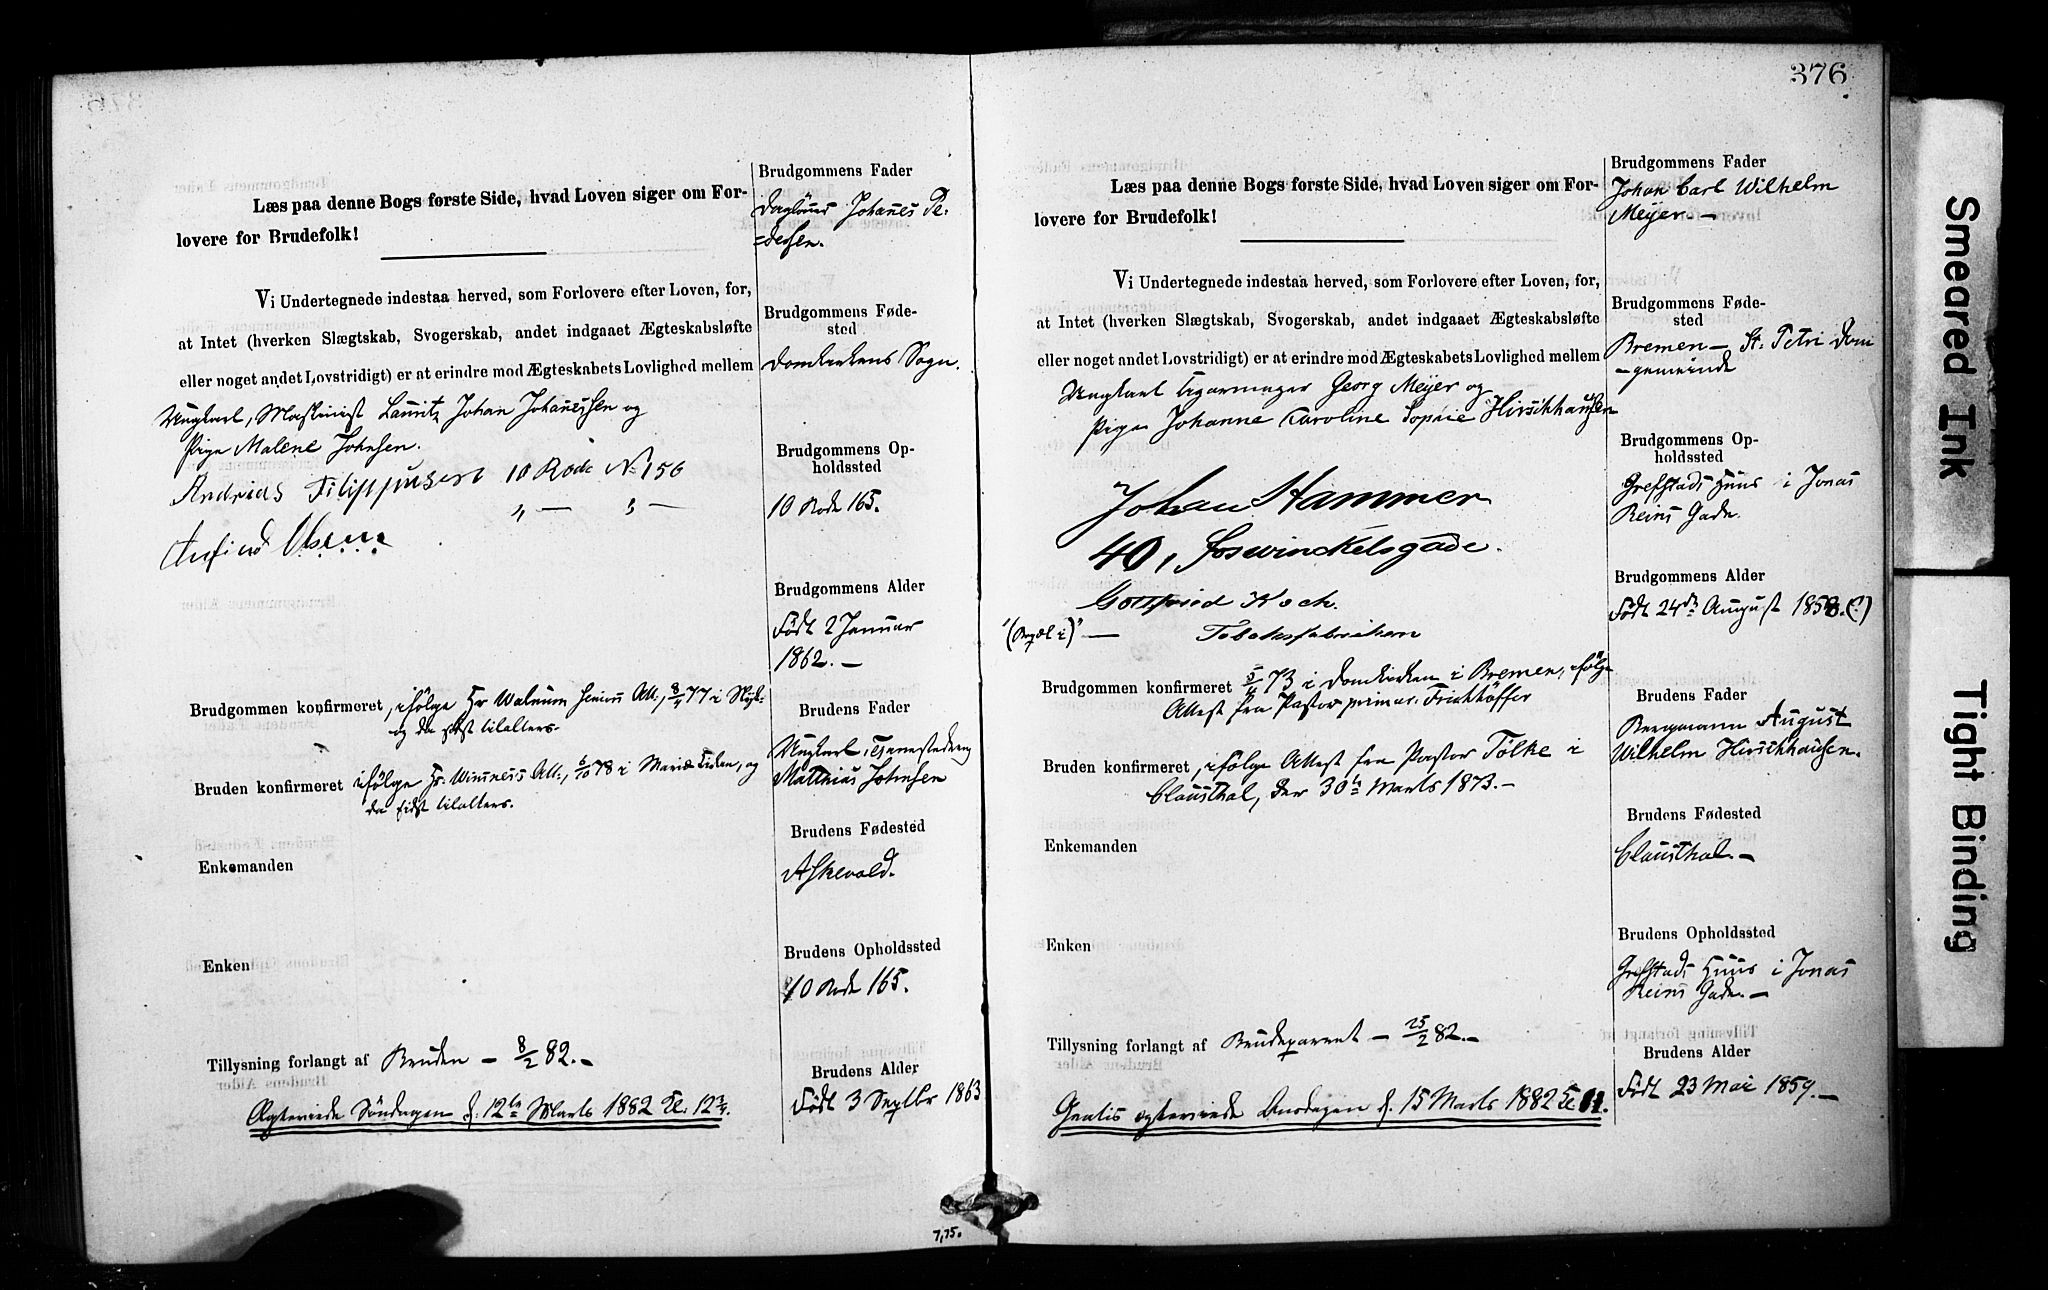 Læs paa denne Bogs første Side, hvad Loven siger om For-
lovere for Brudefolk!
Vi Undertegnede indestaa herved, som Forlovere efter Loven, for,
at Intet (hverken Slægtskab, Svogerskab, andet indgaaet Ægteskabsløfte
eller noget andet Lovstridigt) er at erindre mod Ægteskabets Lovlighed mellem
Ungkarl, Maskinist Lauritz Johan Johannessen og
Pige Malene Johnsen.
Andreas Filippusen 10 Rode No 156
Olsen " — " —
Brudgommen konfirmeret, ifølge Hr Walnum Att., 8/4 77 i
og da sidst tilalters.
Bruden konfirmeret ifølge Hr. Att., 6/10 78 i Mariæ Kirken, og
da sidst tilalters.
Enkemanden
Enken
Tillysning forlangt af Bruden – 8/2 82. –
Ægteviede Søndagen d. 12te Marts 1882 Kl. 12 3/4.
Brudgommens Fader
Johannes Pe-
=dersen.
Brudgommens Føde-
sted
Domkirkens Sogn.
Brudgommens Op-
holdssted
10 Rode 165.
Brudgommens Alder
Født 2 Januar
1862. –
Brudens Fader
Ungkarl,
Matthias Johnsen
Brudens Fødested
Askevold.
Brudens Opholdssted
10 Rode 165.
Brudens Alder
Født 3 Septbr 1863
7,75.
376
Læs paa denne Bogs første Side, hvad Loven siger om For-
lovere for Brudefolk!
Vi Undertegnede indestaa herved, som Forlovere efter Loven, for,
at Intet (hverken Slægtskab, Svogerskab, andet indgaaet Ægteskabsløfte
eller noget andet Lovstridigt) er at erindre mod Ægteskabets Lovlighed mellem
Ungkarl Cigarmager Georg Meyer og
Pige Johanne Caroline Sophie Hirschhausen
Johan Hammer
40, Foswinckelsgade.
Gottfried Koch.
Tobaksfabriken
Brudgommen konfirmeret 5/4 73 i Domkirken i Bremen, ifølge
Attest fra Pastor primar. Frickhöffer
Bruden konfirmeret, ifølge Attest fra Pastor Tölke i
Clausthal, den 30te Marts 1873. –
Enkemanden
Enken
Tillysning forlangt af Brudeparret – 25/2 82. –
Gratis ægteviede Onsdagen d. 15 Marts 1882 Kl 11.
Brudgommens Fader
Johan Carl Wilhelm
Meyer –
Brudgommens Føde-
sted
Bremen – St. Petri Dom
-gemeinde
Brudgommens Op-
holdssted
Grefstads Huus i Jonas
Reins Gade.
Brudgommens Alder
Født 24de August 1858. (?)
Brudens Fader
Bergmann August
Wilhelm Hirschhausen.
Brudens Fødested
Clausthal. –
Brudens Opholdssted
Grefstads Huus i Jonas
Reins Gade. –
Brudens Alder
Født 23 Mai 1859. –
Smeared Ink
Tight Binding